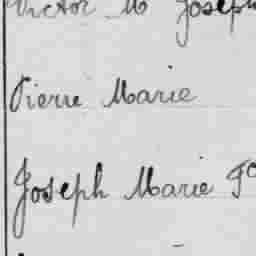 Victor M Joseph
Pierre Marie
Joseph Marie Fo